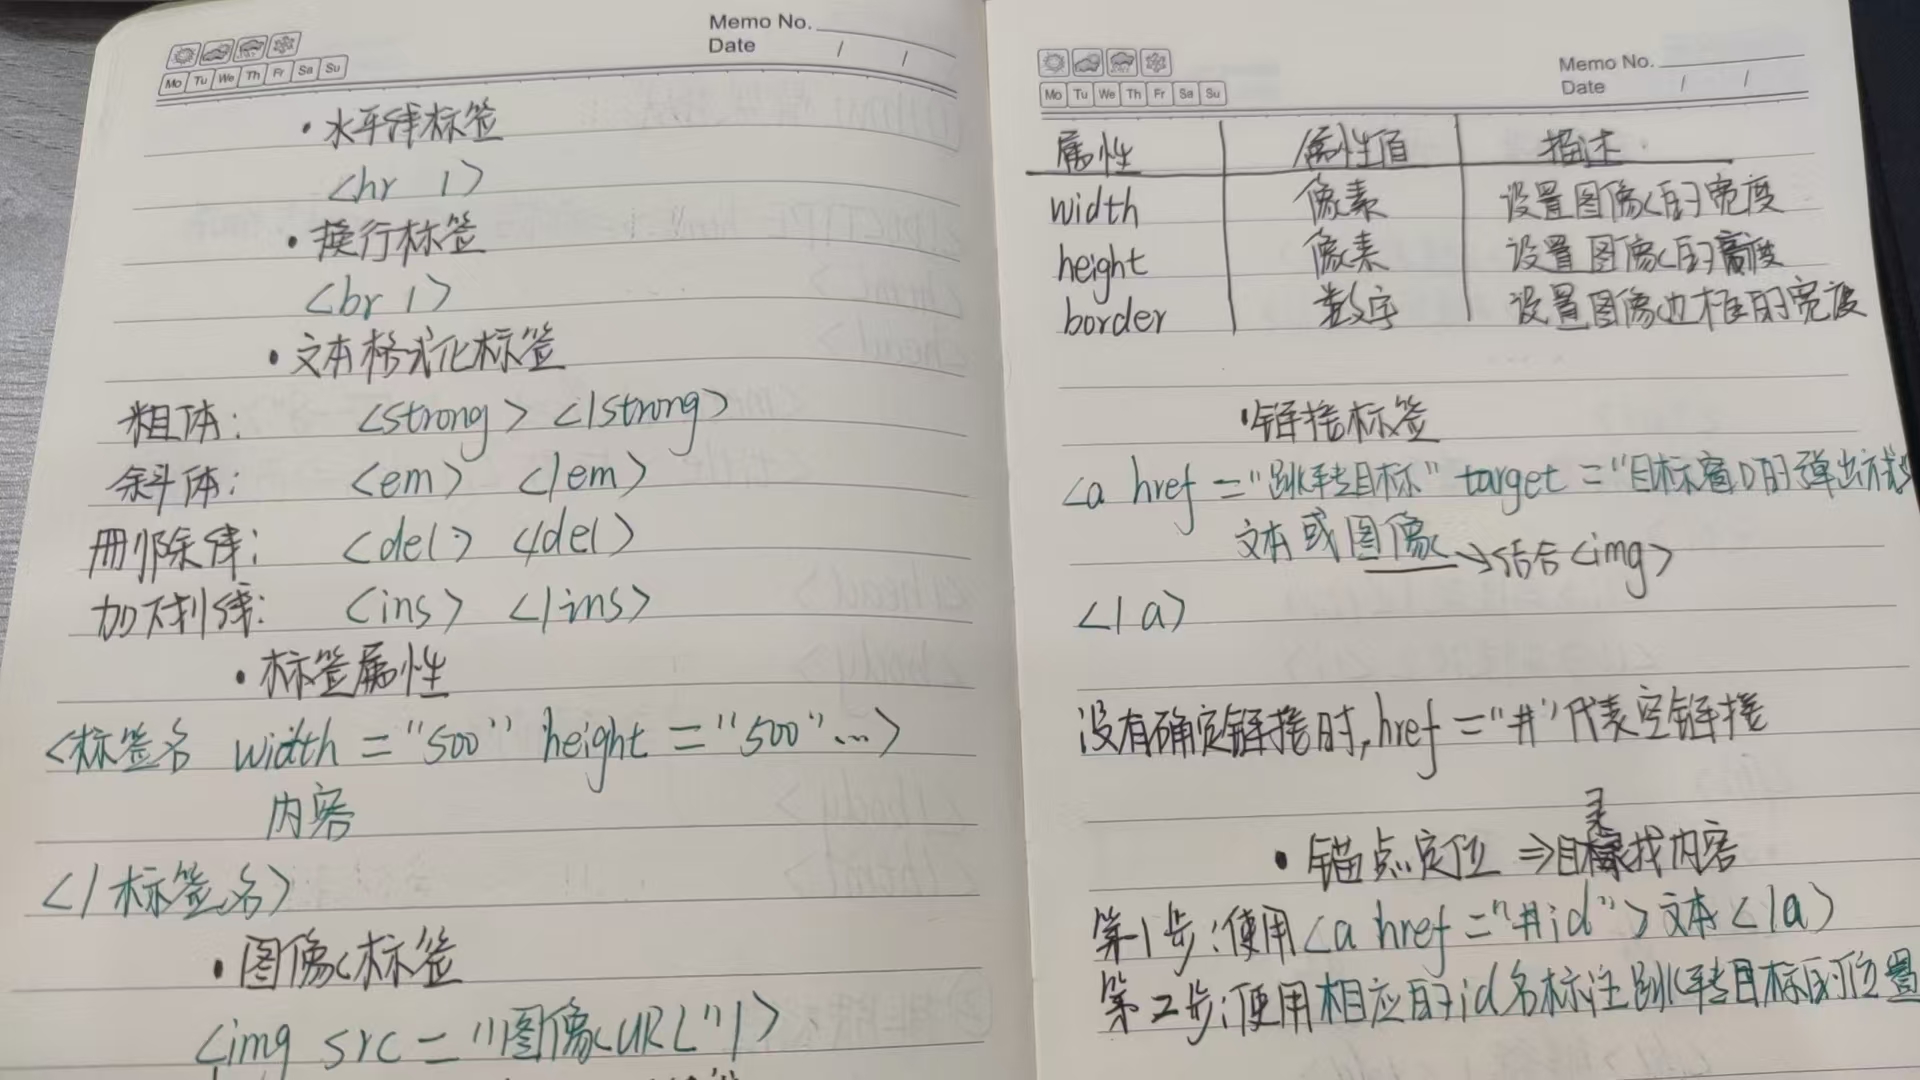 Memo No.
Date / /
Mo Tu We Th Fr Sa Su
·水平线标签
<hr />
·换行标签
<br />
·文本格式化标签
粗体: <strong> </strong>
斜体: <em> </em>
删除线: <del> </del>
加下划线: <ins> </ins>
·标签属性
<标签名 width="500" height="500"…>
内容
</标签名>
·图像标签
<img src="图像URL"/>
Memo No.
Date / /
Mo Tu We Th Fr Sa Su
属性 属性值 描述
width 像素 设置图像的宽度
height 像素 设置图像的高度
border 数字 设置图像边框的宽度
·链接标签
<a href="跳转目标" target="目标窗口的弹出方式
文本或图像→结合<img>
</a>
没有确定链接时,href="#"代表空链接
·锚点定位⇒目录找内容
第1步:使用<a href="#id">文本</a>
第2步:使用相应的id名标注跳转目标的位置